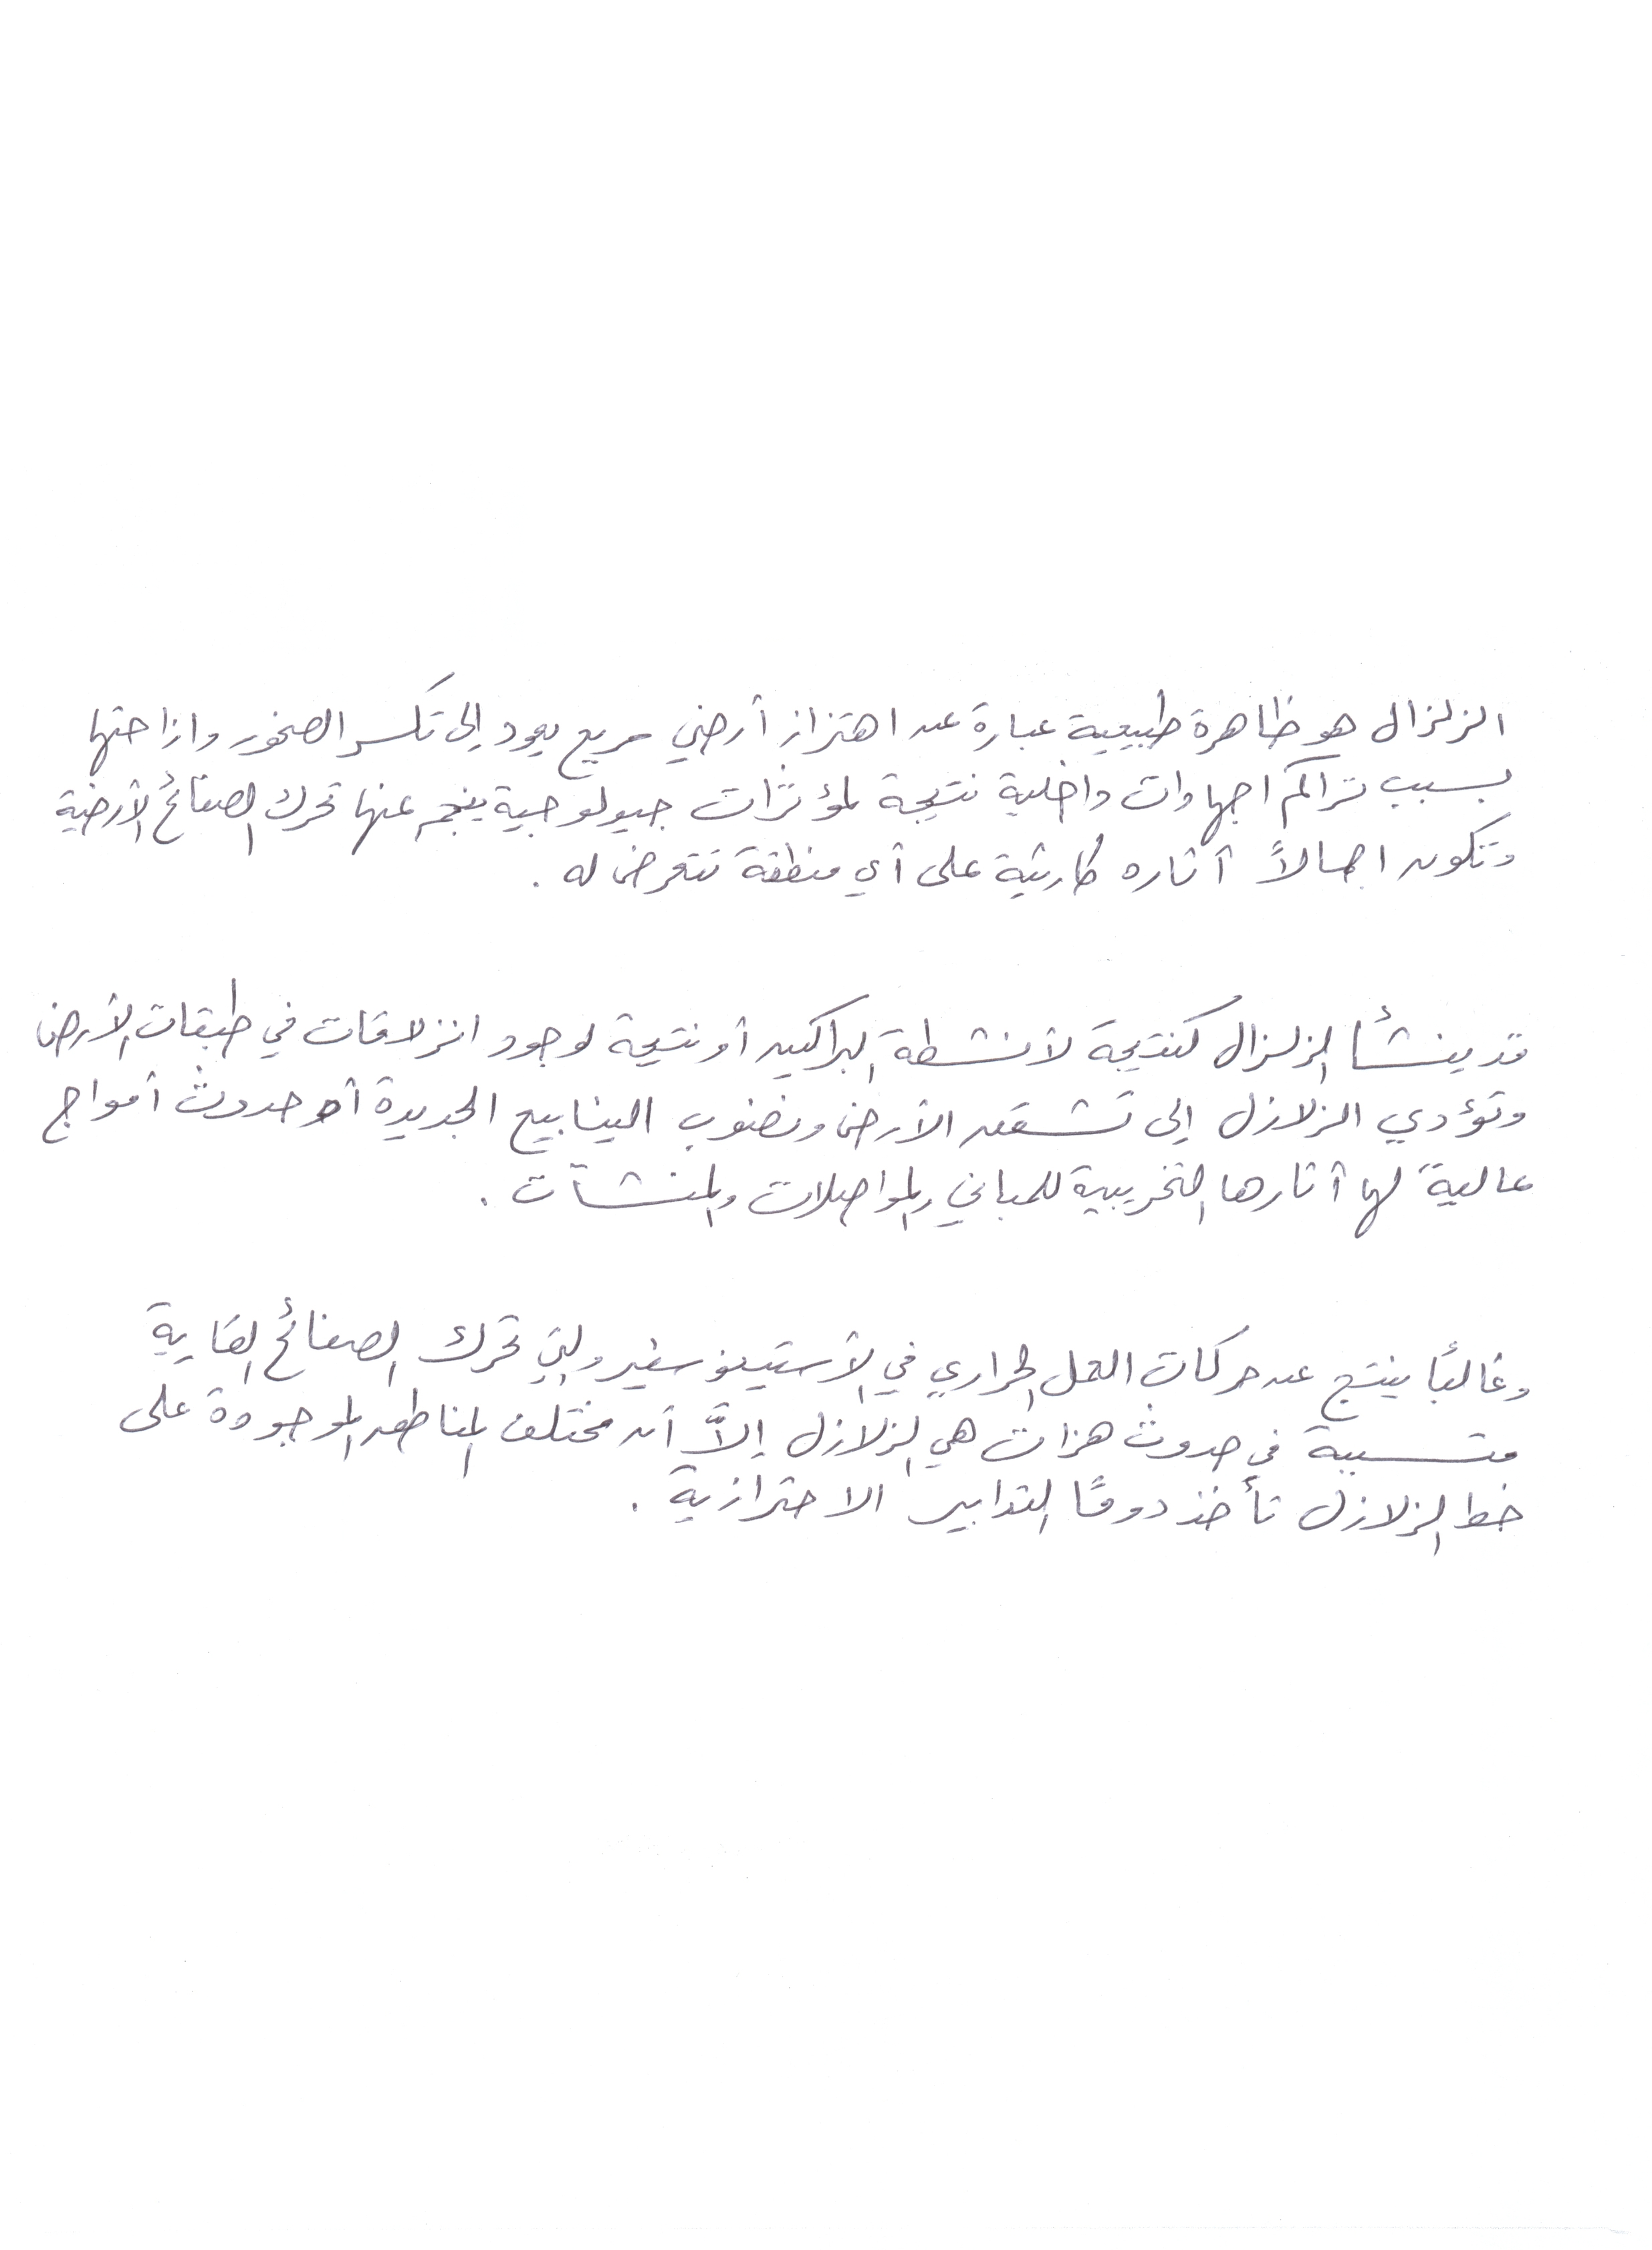 الزلزال هو ظاهرة طبيعية عبارة عن اهتزاز أرضي سريع يعود إلى تكسر الصخور وازاحتها
بسبب تراكم اجهادات داخلية نتيجة لمؤثرات جيولوجية ينجم عنها تحرك الصفائح الأرضية
وتكون اجمالاً آثاره كارثية على أي منطقة تتعرض له .
قد ينشأ الزلزال كنتيجة لأنشطة البراكين أو نتيجة لوجود انزلاقات في طبقات الأرض
وتؤدي الزلازل إلى تشقق الأرض ونضوب الينابيع الجديدة أو حدوث أمواج
عالية لها آثارها التخريبية للمباني والمواصلات والمنشآت .
وغالبًا ينتج عن حركات الحمل الحراري في الأستينوسفير والتي تحرك الصفائح القارية
متسببة في حدوث هزات هي الزلازل إلاَّ أن مختلف المناطق الموجودة على
خط الزلازل تأخذ دومًا التدابير الاحترازية .